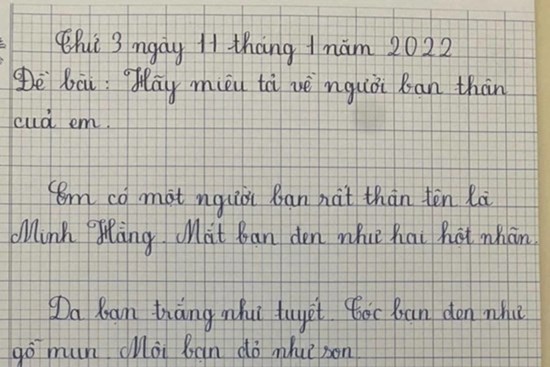 Thứ 3 ngày 11 tháng 1 năm 2022
Đề bài : Hãy miêu tả về người bạn thân
cuả em .
Em có một người bạn rất thân tên là
Minh Hằng. Mắt bạn đen như hai hột nhãn.
Da bạn trắng như tuyết. Tóc bạn đen như
gỗ mun. Môi bạn đỏ như son